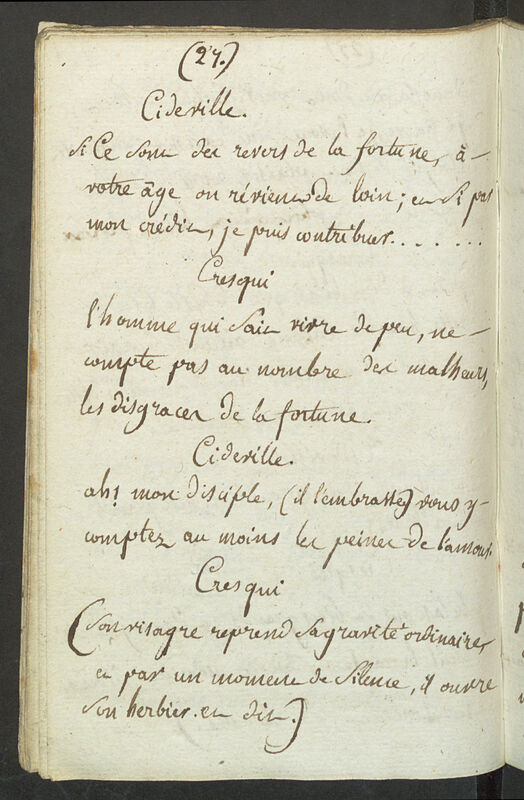 (27.)
Cideville.
si Ce sont des revers de la fortune, à
votre âge on révient de loin; et si par
mon crédit, je puis contribuer.......
Cresqui
l'homme qui sait vivre de peu, ne
compte pas au nombre des malheurs,
les disgraces de la fortune.
Cideville.
ah! mon disciple, (il l'embrasse) vous y
comptez au moins les peines de l'amour.
Cresqui
(son visagre reprend sa gravité ordinaire,
et par un moment de Silence, il ouvre
son herbier et dit.)